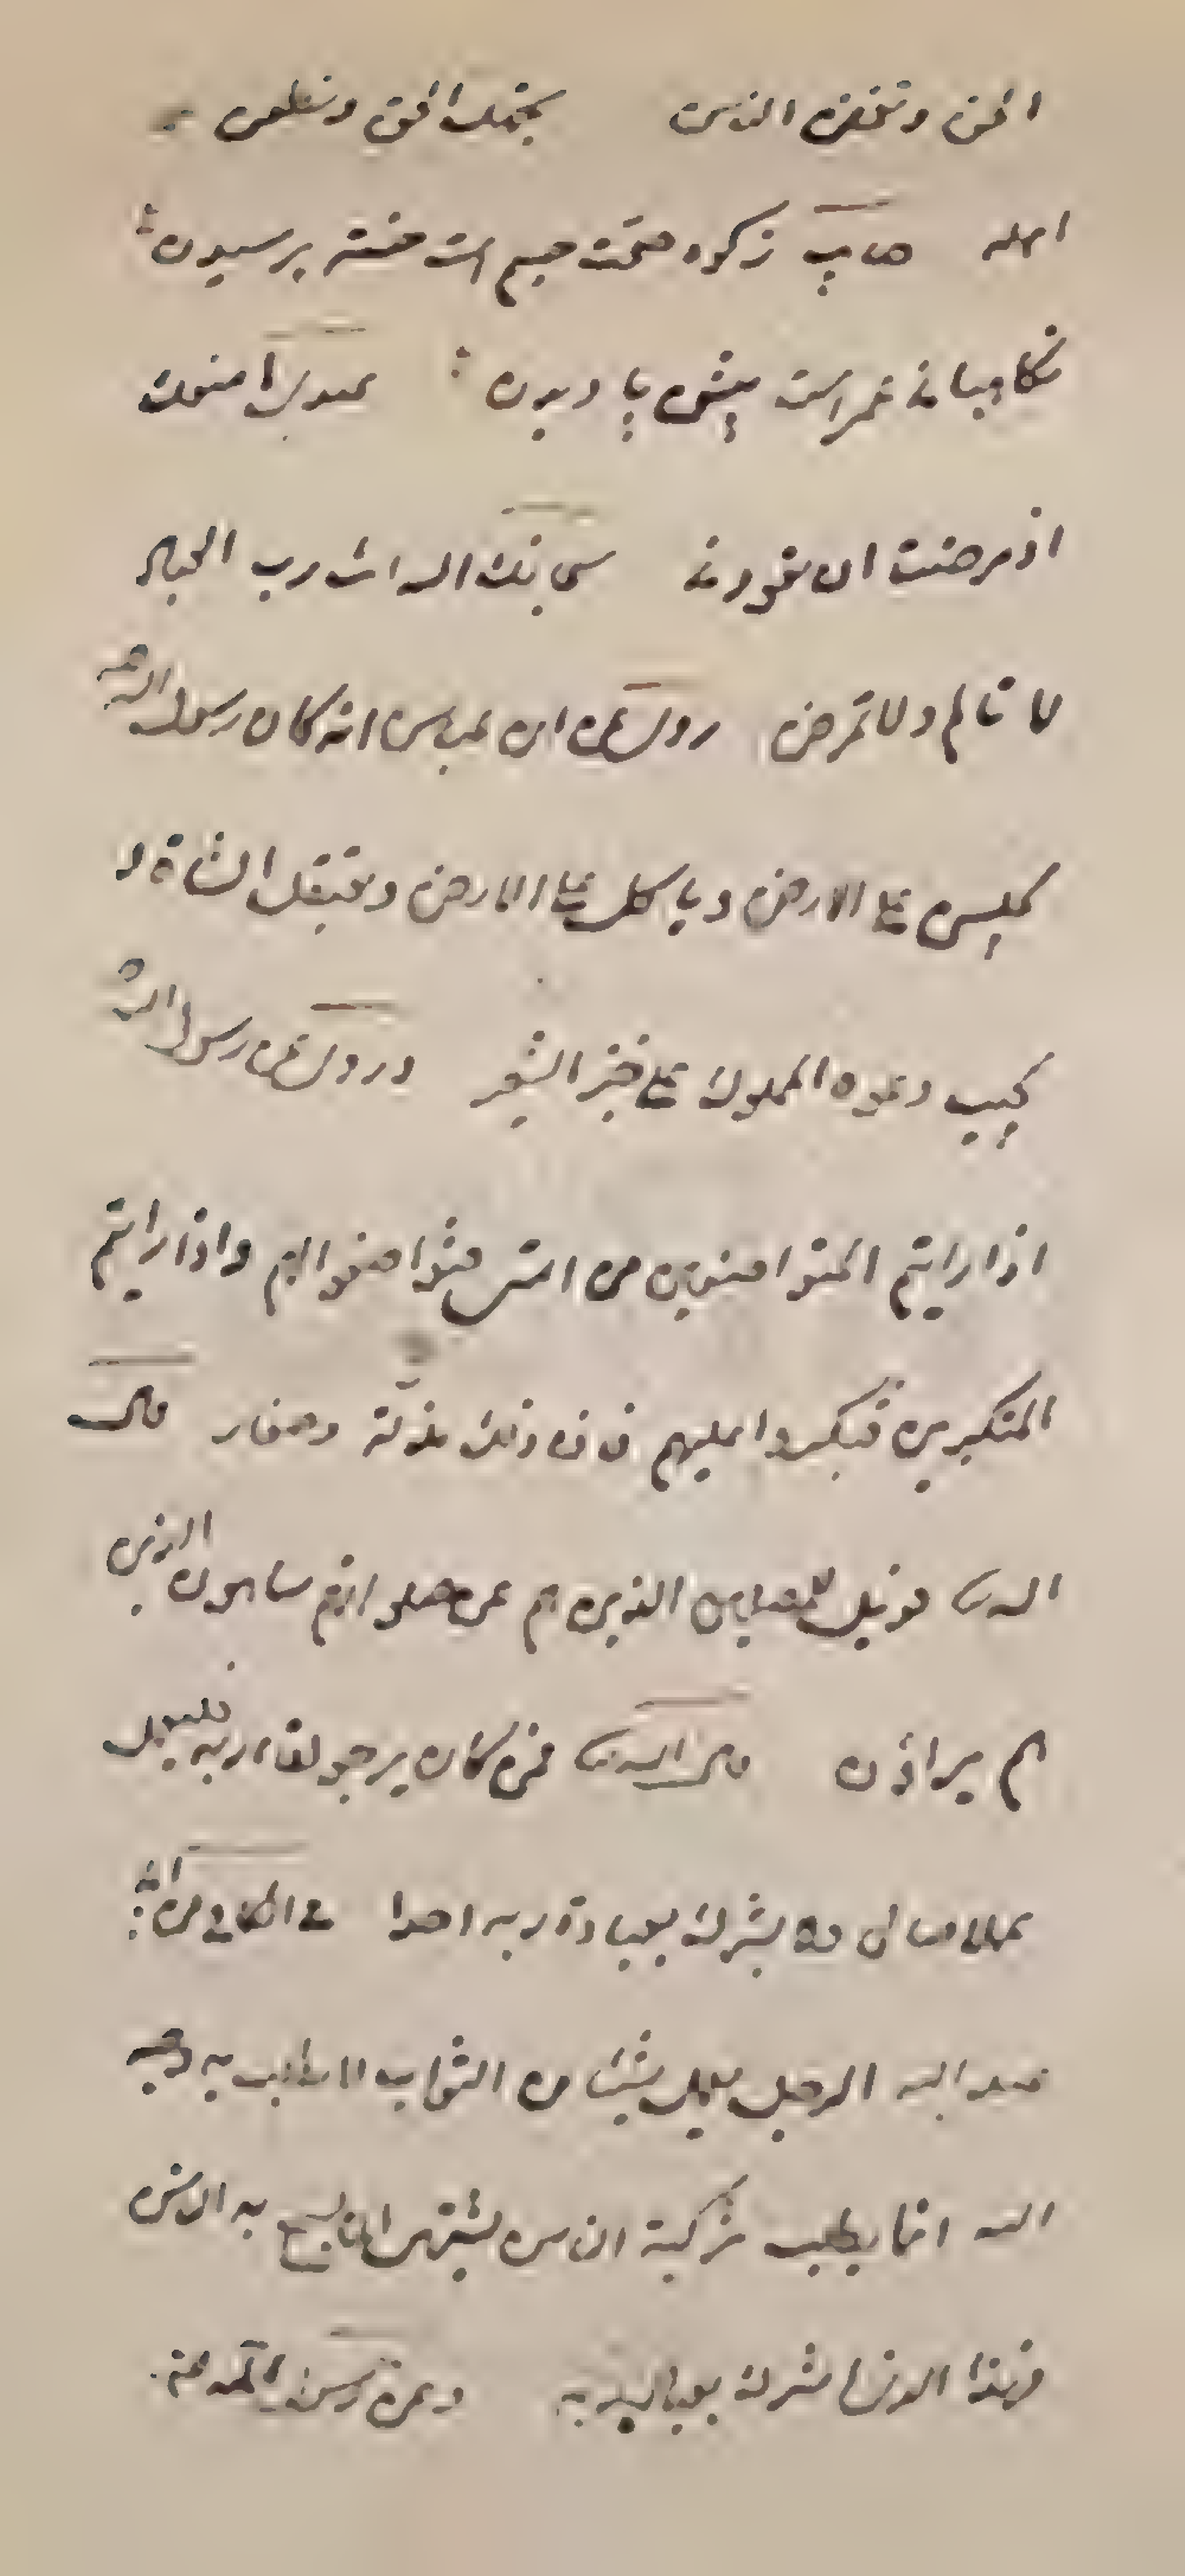 الحق وتحقر الناس بجهلك الحق وتطعن
اهله صاب زكوة صحت جسم است خسته پرسیدن
نکاهبانی عمر است پیش پا دیدن عبدی ما منعک
اذ مرضت ان تعودنی سبحانک الله انت رب العباد
لا تالم ولا تمرض روی عن ابن عباس انه کان رسول الله ص
یجلس علی الارض ویاکل علی الارض ویعتقل الشاة و
یجیب دعوة المملوک علی خبز الشعیر و روی عن رسول الله ص
اذا رایتم المتواضعین من امتی فتواضعوا لهم واذا رایتم
المتکبرین فتکبروا علیهم فان ذلک مذلة وصغار قال
الله تع فویل للمصلین الذین هم عن صلواتهم ساهون الذین
هم یراؤن قال الله تع فمن کان یرجو لقاء ربه فلیعمل
عملا صالحا ولا یشرک بعبادة ربه احدا فی الکافی عن ابی
عبد الله الرجل یعمل شیئا من الثواب لا یطلب به وجه
الله انما یطلب تزکیة الناس یشتهی ان یسمع به الناس
فهذا الذی اشرک بعبادة ربه وعن